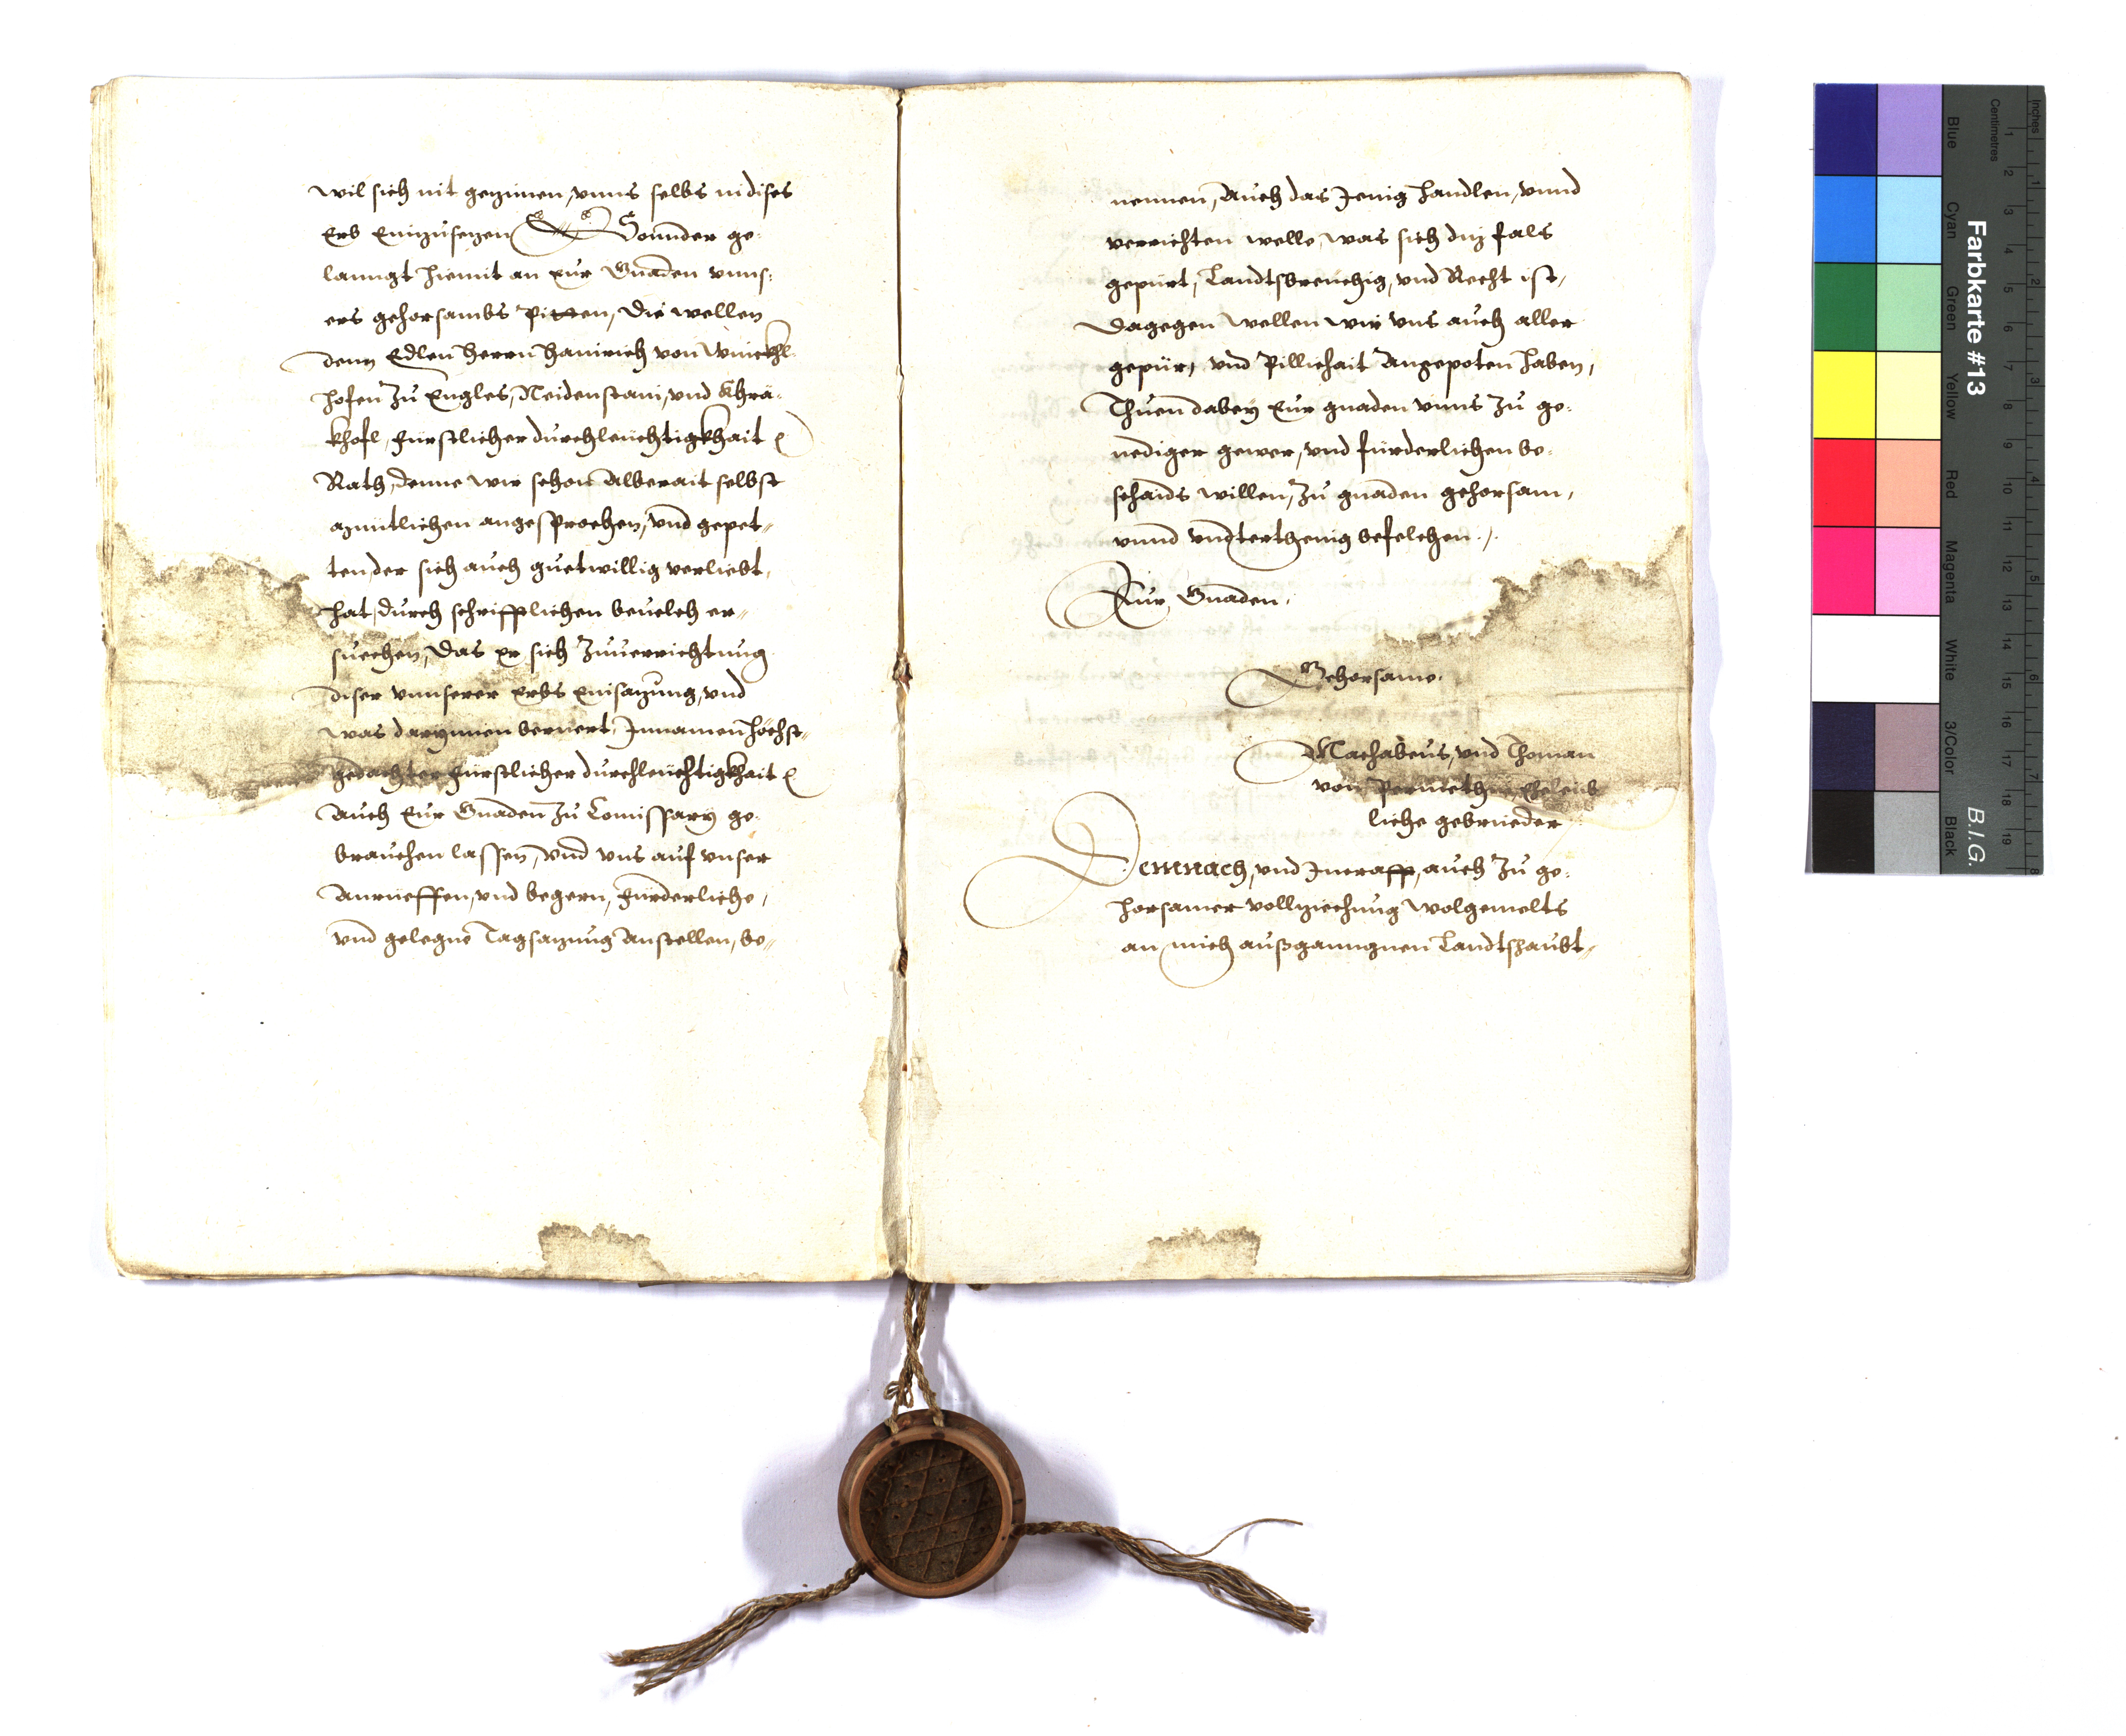 wil sich nit gezimen, vnns selbs in dises
Erb einzusezen Sonnder ge-
lanngt hiemit an Eur Gnaden vnns-
ers gehorsambs Pitten, die wellen
denn Edlen Herrn Hainrich von Winckhl-
hofen zu Engles, Neidenstain, vnd Khrä-
khofl, Fürstlicher durchleüchtigkhait
Rath, denne wir schon Alberait selbst
angesprochen, vnd gepet-
ten der sich auch guetwillig verliebt
hat, durch schrifftlichen beuelch er-
suechen, das er sich Zuuerrichtung
diser vnnserer Erbs Einsazung, vnd
was darynnen beruert, Innamen höchst-
gedachter Fürstlicher durchleüchtigkhait
Auch Eur Gnaden zu Comissary ge-
brauchen lassen, vnd vns auf vnser
Anrueffen, vnd begern, Fürderliche,
vnd gelegne Tagsazung Anstellen, be-
nennen, Auch das Jenig Handlen, vnnd
verrichten welle, was sich diz fals
gepürt, Landtsbreuchig, vnd Recht ist,
Dagegen wellen wir vns auch aller
gepür, vnd Pillichait Angepoten haben,
Thuen dabey Eur gnaden vnns zu ge-
nediger gewer, vnd fürderlichen be-
schaids willen, zu gnaden gehorsam,
vnnd vndterthenig befelchen.
Eur Gnaden.
Gehorsame.
Machabeus, vnd Thoman
von Eheleib
liche gebrueder
Demnach, vnd Jnerafft, auch zu ge-
horsamer volziechung wolgemelts
an mich außganngnen Landtshaubt-
Farbkarte #13
B.I.G.
Blue
Cyan
Green
Yellow
Red
Magenta
White
3/Color
Black
Inches
Centimetres
1 2 3 4 5 6 7 8 9 10 11 12 13 14 15 16 17 18 19
1 2 3 4 5 6 7 8